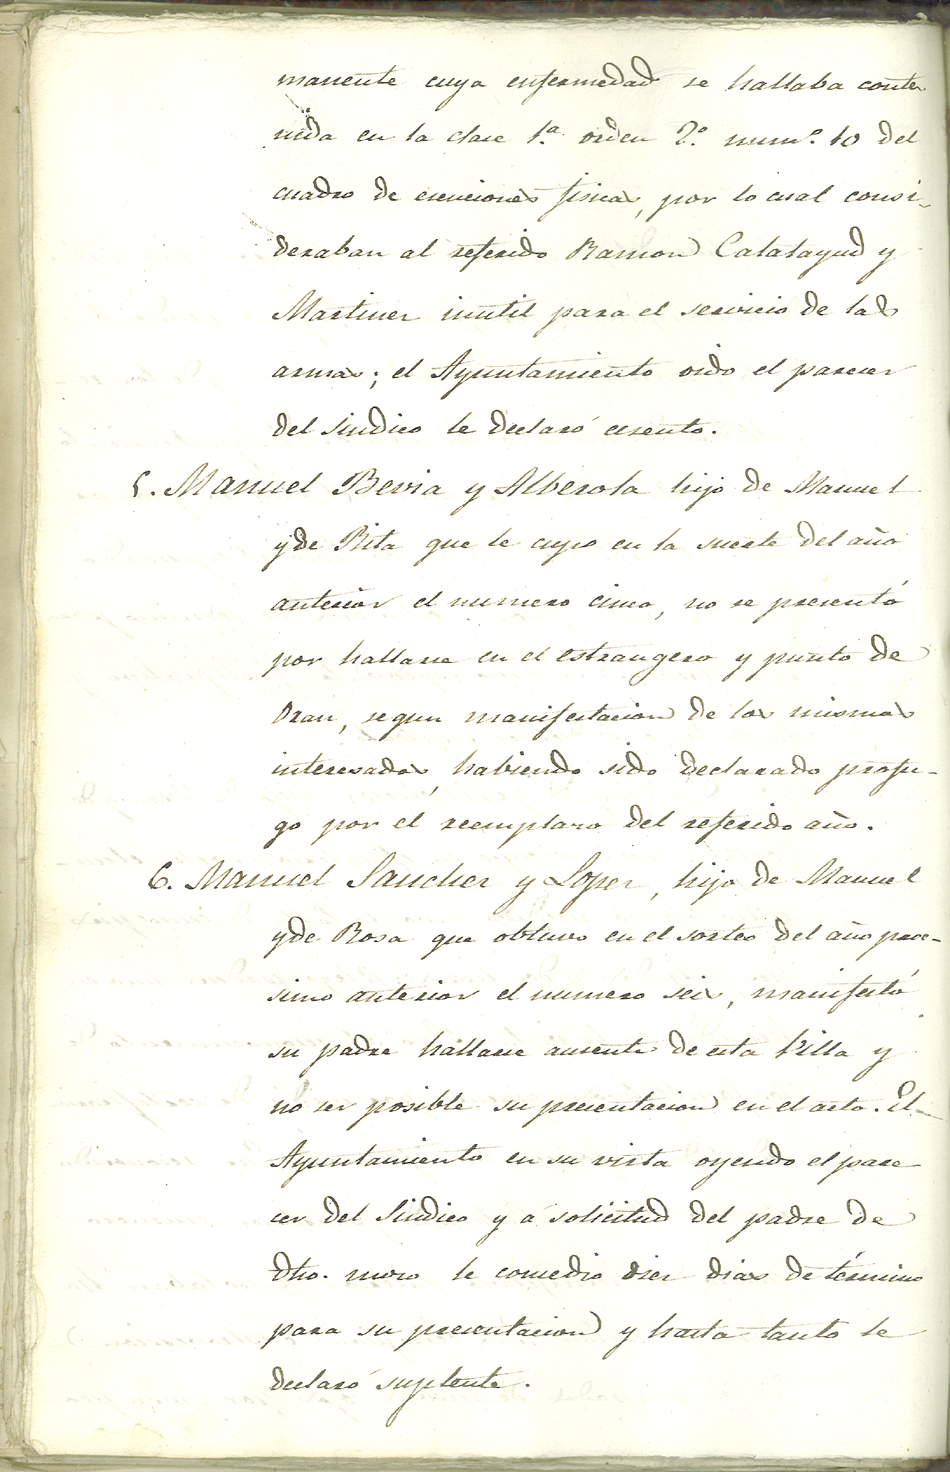 manente cuya enfermedad se hallaba conte
nida en la clase 1.ª orden 2.º num.º 10 del
cuadro de esenciones fisicas, por lo cual consi-
deraban al referido Ramon Calatayud y
Martinez inutil para el servicio de las
armas; el Ayuntamiento oido el parecer
del Sindico le declaró esento.
5. Manuel Bevia y Alberola hijo de Manuel
y de Rita que le cupo en la suerte del año
anterior el numero cinco, no se presentó
por hallarse en el estrangero y punto de
Oran, segun manifestacion de los mismos
interesados, habiendo sido declarado profu-
go por el reemplazo del referido año.
6. Manuel Sanchez y Lopez, hijo de Manuel
y de Rosa que obtuvo en el sorteo del año proc-
simo anterior el numero seis, manifestó
su padre hallarse ausente de esta Villa y
no ser posible su presentacion en el acto. El
Ayuntamiento en su vista oyendo el pare
cer del Sindico y a solicitud del padre de
dho. mozo le concedio diez dias de término
para su presentacion y hasta tanto le
declaró suplente.